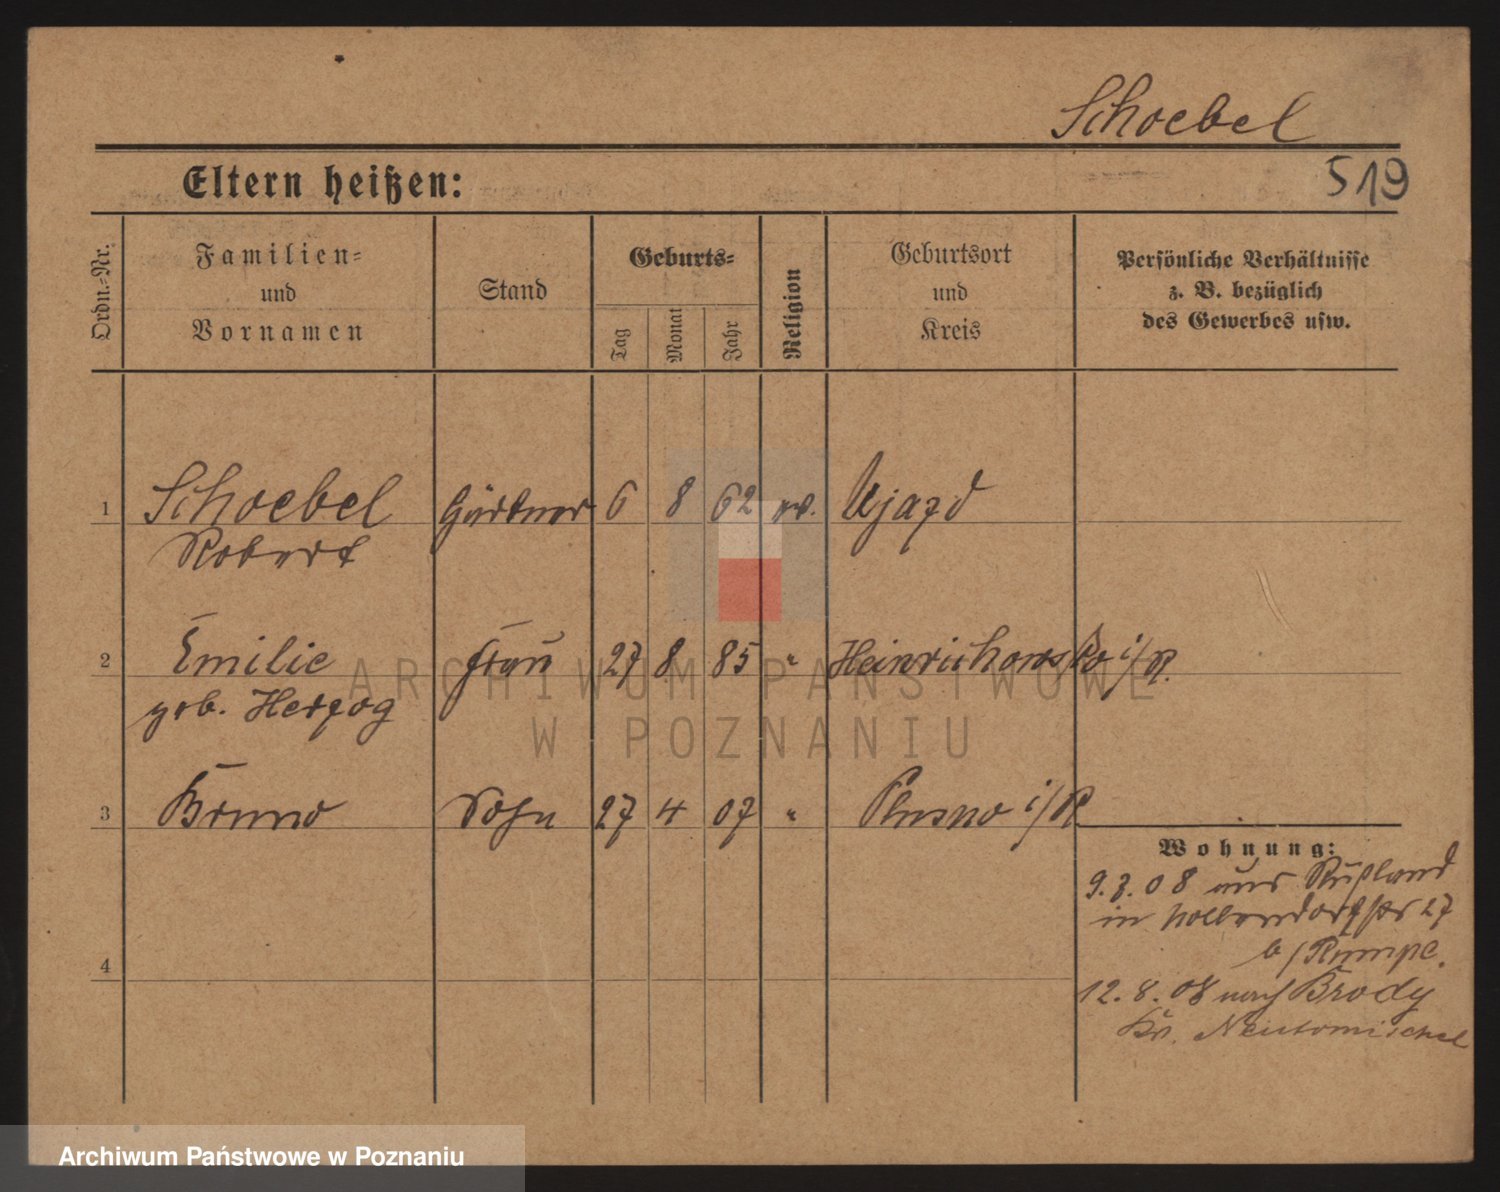 Schoebel
Eltern heißen:
519
Ordn.-Nr.
Familien-
und
Vornamen
Stand
Geburts-
Tag
Monat
Jahr
Religion
Geburtsort
und
Kreis
Persönliche Verhältnisse
z. B. bezüglich
des Gewerbes usw.
1 Schoebel Gärtner 6 8 62 ev. Ujazd
Robert
2 Emilie Frau 27 8 85 " Heinrichowsko i/R.
geb. Herzog
3 Bruno Sohn 27 4 07 " i/R
Wohnung:
9.3.08 aus Rußland
in Hollendorfstr 27
b/Rumpe.
4
12.8.08 nach Brody
Kr. Neutomischel
ARCHIWUM PAŃSTWOWE
W POZNANIU
Archiwum Państwowe w Poznaniu